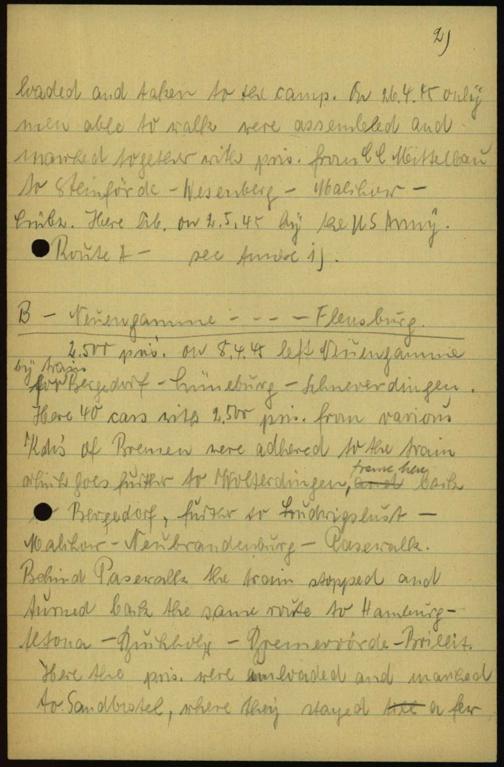 2)
loaded and taken to the camp. On 26.4.45 only
men able to walk were assembled and
marked together with pris. from CC Mittelbau
to Steinförde - Wesenberg - Malchow -
Lübz. Here lib. on 2.5.45 by the US Army.
Route A - see Annex 1).
B - Neuengamme - - - - Flensburg.
2.500 pris. on 8.4.45 left Neuengamme
by train
for Bergedorf - Lüneburg - Schneverdingen.
Here 40 cars with 2.500 pris. from various
Kdo's of Bremen were adhered to the train
which goes further to Wolterdingen, from here back
Bergedorf, further to Ludwigslust -
Malchow - Neubrandenburg - Pasewalk.
Behind Pasewalk the train stopped and
turned back the same route to Hamburg -
Altona - Buchholz - Bremervörde - Brillit.
Here the pris. were unloaded and marked
to Sandbostel, where they stayed a few